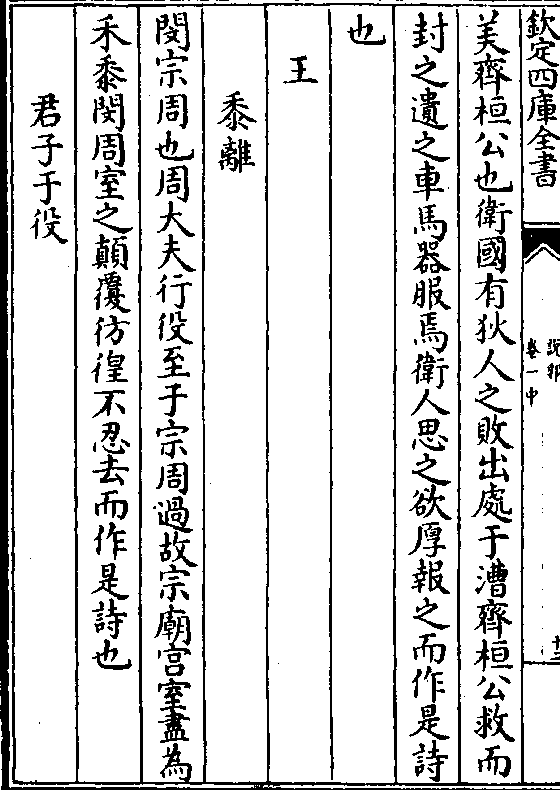 欽定四庫全書
說郛
卷一中
美齊桓公也衛國有狄人之敗出處于漕齊桓公救而
封之遺之車馬器服焉衛人思之欲厚報之而作是詩
也
王
黍離
閔宗周也周大夫行役至于宗周過故宗廟宫室盡為
禾黍閔周室之顛覆彷徨不忍去而作是詩也
君子于役